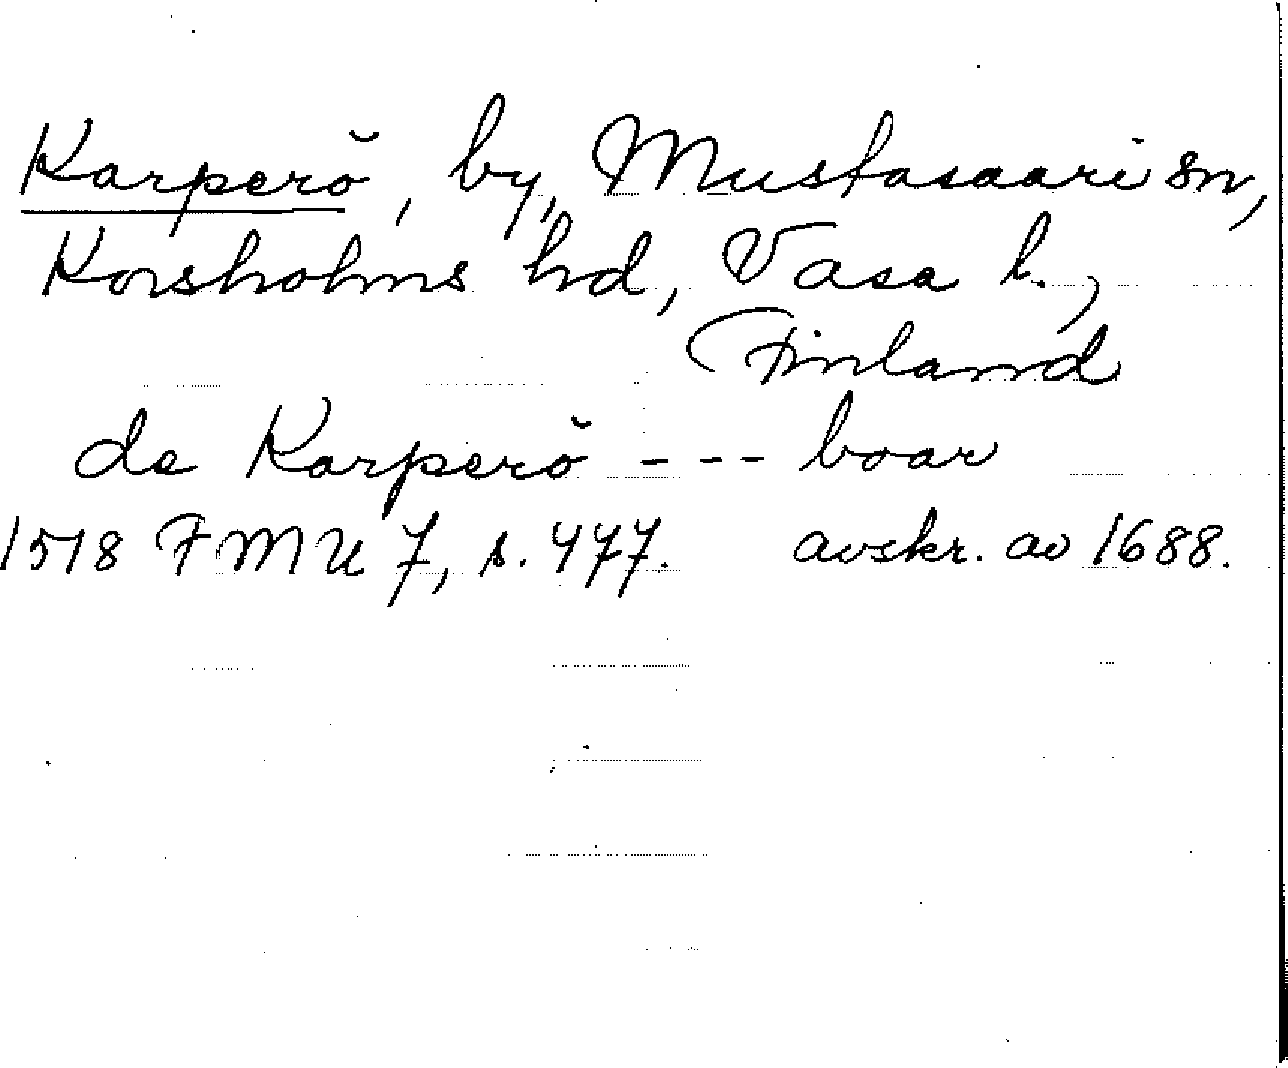 Karperö, by, Mustasaari sn,
Korsholms hd, Vasa l.,
Finland
de Karperö --- boar
1518 FMU 7, s. 477. avskr. av 1688.